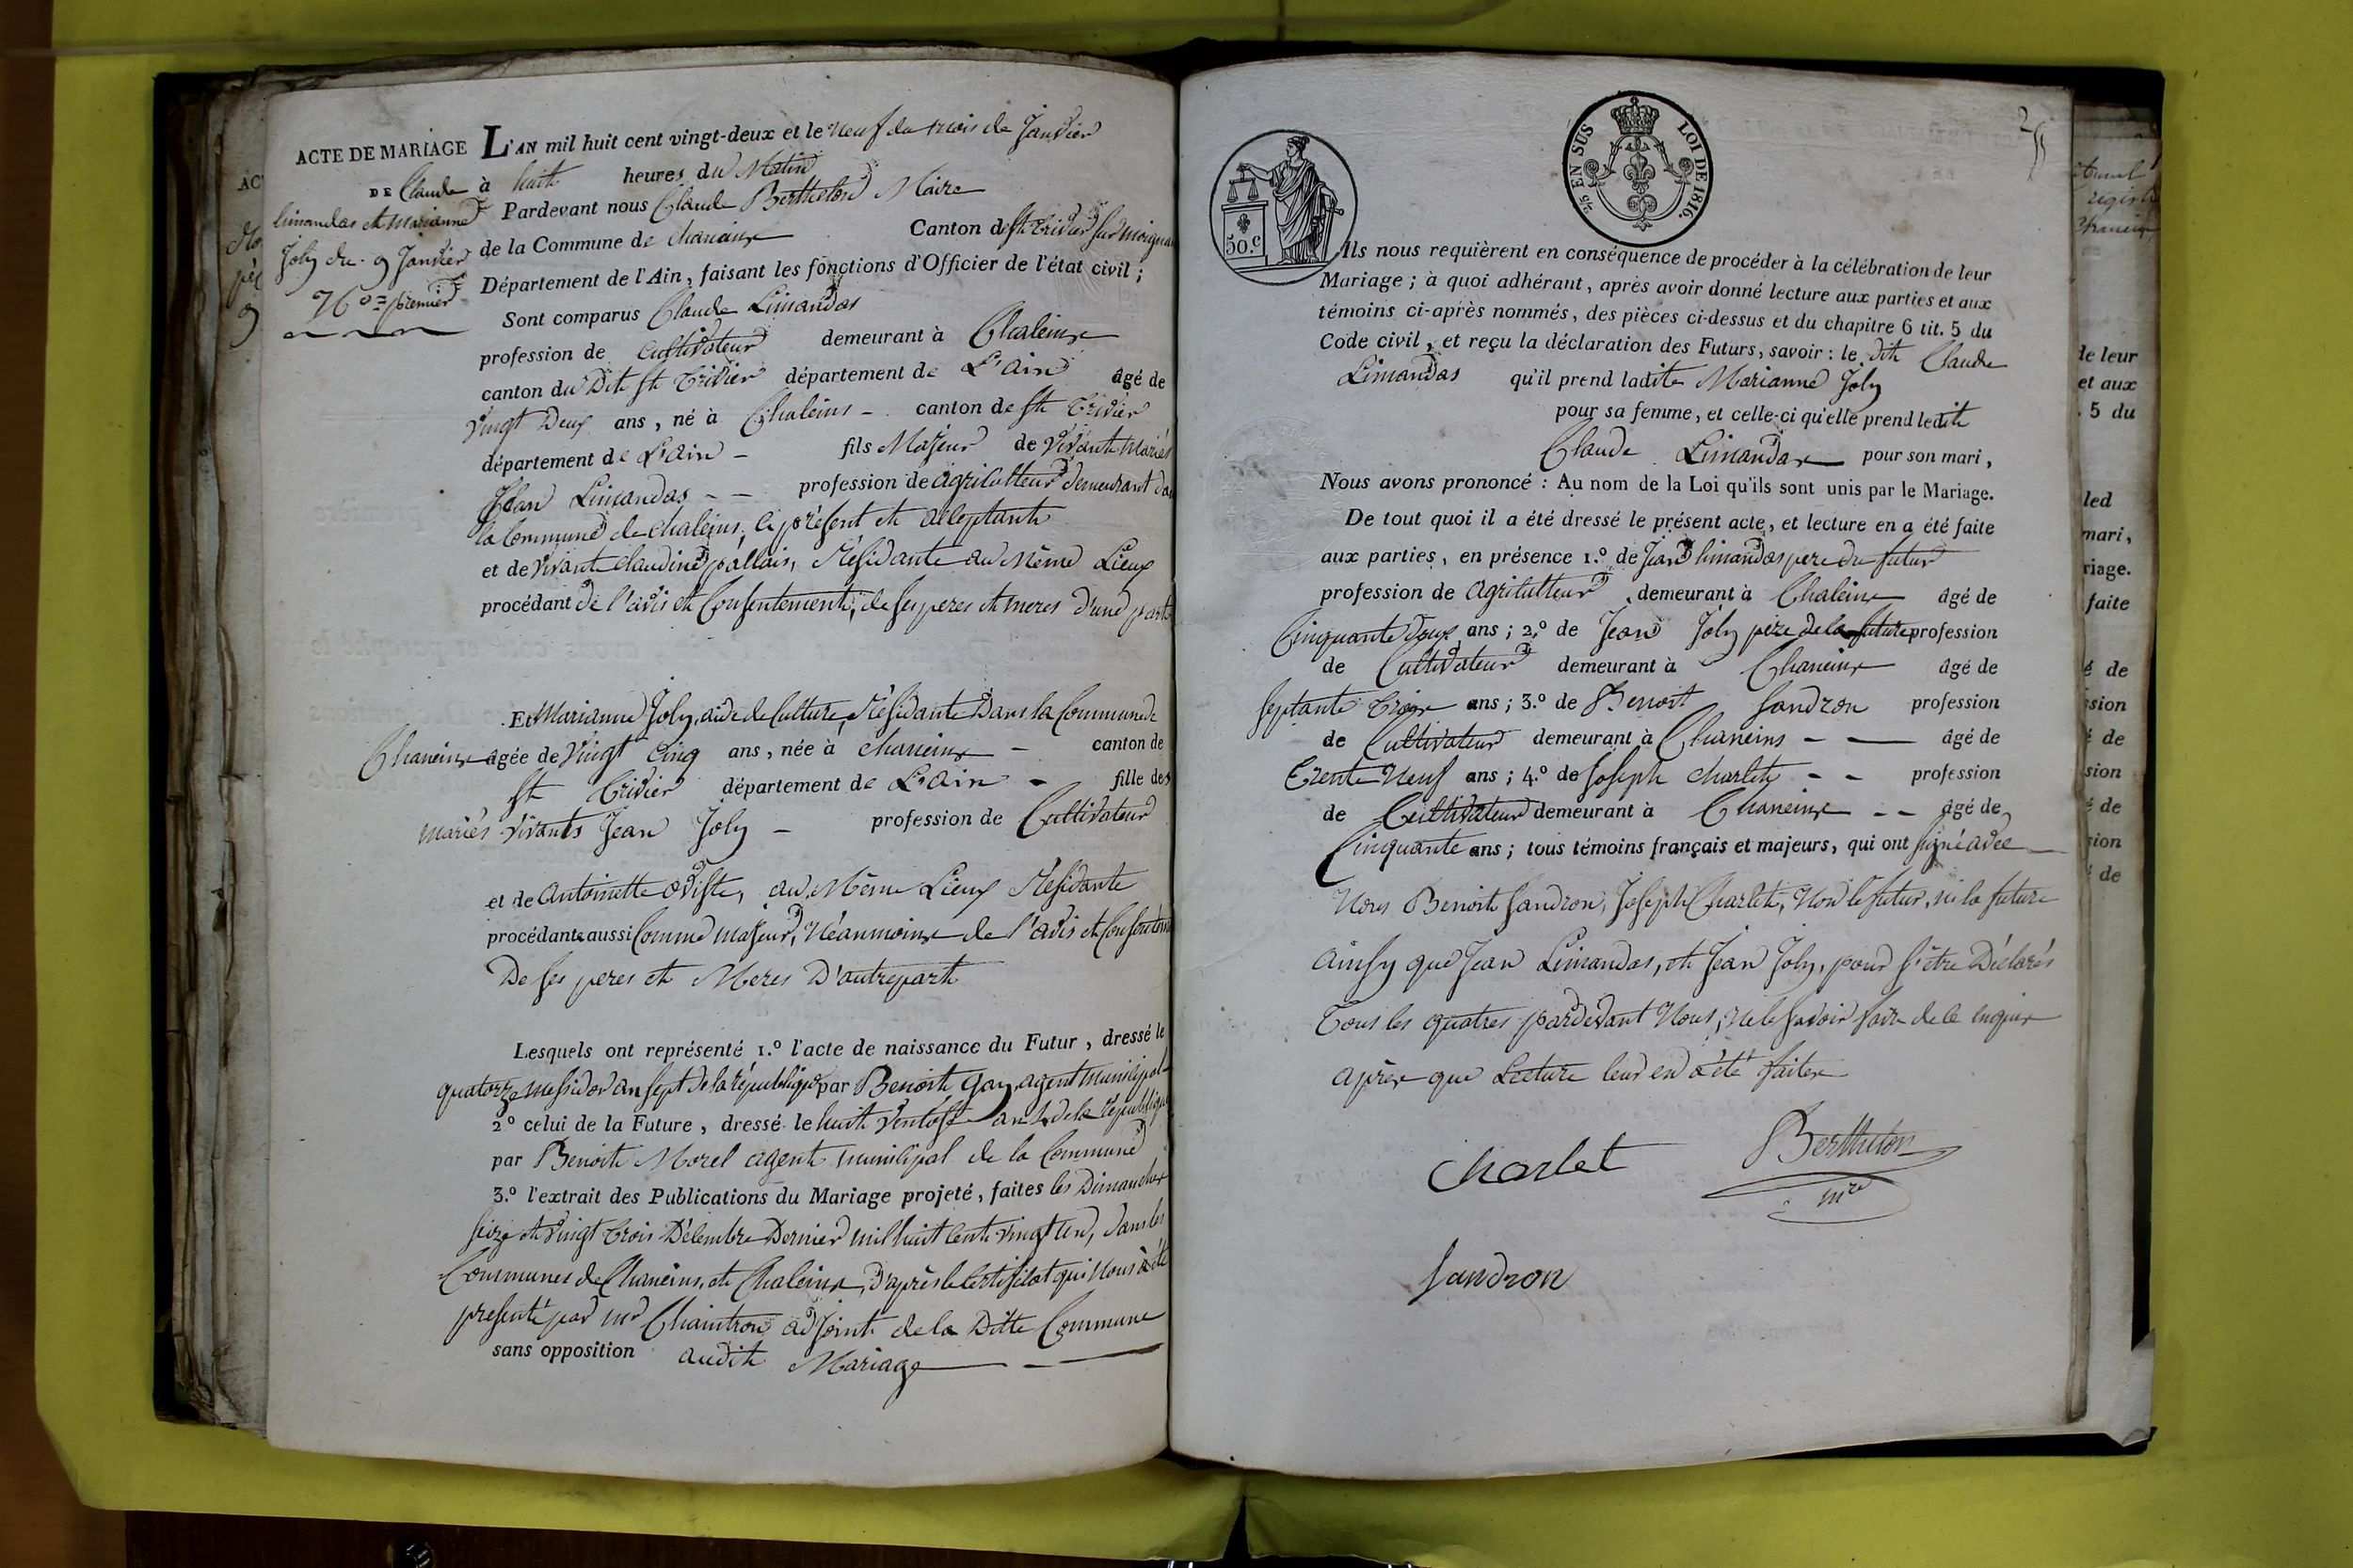 ACTE DE MARIAGE
DE Claude
limandas et marianne
Joly du 9 Janvier
N.o premier
L'AN mil huit cent vingt-deux et le neuf du mois de Janvier
à huit heures du Matin
Pardevant nous Claude Berthelon Maire
de la Commune de chaneins Canton de St trivier sur moignan
Département de l'Ain, faisant les fonctions d'Officier de l'état civil ;
Sont comparus Claude Limandas
profession de Cultivateur demeurant à Chaleins
canton du Dit St Trivier département de L'ain âgé de
Vingt Deux ans, né à Chaleins - canton de St Trivier
département de L'ain - fils Majeur de Vivants Mariés
Jean Limandas - - profession de agriculteur demeurant dans
la Commune de chaleins, ci présent et acceptant
et de Vivante claudine pallais, Résidante au Même Lieux
procédant de l'avis et Consentement, de ses peres et meres d'une part
Et Marianne Joly, aide de Culture, Résidante Dans la Commune de
Chaneins agée de Vingt Cinq ans, née à chaneins - canton de
St Trivier département de L'ain - fille des
mariés vivants Jean Joly - profession de Cultivateur
et de antoinette oviste, au Même Lieux Résidante
procédante aussi Comme majeur, Néanmoins de l'avis et Consentem
De ses peres et Meres D'autre part
Lesquels ont représenté 1.º l'acte de naissance du Futur, dressé le
quatorze messidor an sept de la république par Benoit Gay agent Municipal
2º celui de la Future, dressé le huit Ventose an de la république
par Benoit Morel agent municipal de la Commune
3.º l'extrait des Publications du Mariage projeté, faites les Dimanches
seize et vingt trois Décembre Dernier mil huit cent vingt un, dans les
Communes de Chaneins, et Chaleins, D'après le Certificat qui Nous à été
presenté par mr Chaintron adjoint de la Ditte Commune
sans opposition audit Mariage
2
50.c
2/5 EN SUS
LOI DE 1816.
Ils nous requièrent en conséquence de procéder à la célébration de leur
Mariage ; à quoi adhérant, après avoir donné lecture aux parties et aux
témoins ci-après nommés, des pièces ci-dessus et du chapitre 6 tit. 5 du
Code civil, et reçu la déclaration des Futurs, savoir : le dit Claude
Limandas qu'il prend ladite Marianne Joly
pour sa femme, et celle-ci qu'elle prend ledit
Claude Limandas pour son mari,
Nous avons prononcé : Au nom de la Loi qu'ils sont unis par le Mariage.
De tout quoi il a été dressé le présent acte, et lecture en a été faite
aux parties, en présence 1.º de Jean limandas pere du futur
profession de agriculteur demeurant à Chaleins âgé de
Cinquante Deux ans ; 2.º de Jean Joly pere de la future profession
de Cultivateur demeurant à Chaneins âgé de
septante Trois ans ; 3.º de Benoit Sandron profession
de Cultivateur demeurant à Chaneins - - âgé de
Trente Neuf ans ; 4.º de Joseph charlet - - profession
de Cultivateur demeurant à Chaneins - - âgé de
Cinquante ans ; tous témoins français et majeurs, qui ont signé avec
Nous Benoit Sandron, Joseph Charlet, Non le futur, ni la future
ainsy que Jean Limandas, et Jean Joly, pour s'être Déclarés
Tous les quatres pardevant Nous, ne le savoir faire de ce enquis
après que Lecture leur en à été faites
Charlet
Berthelon
mre
Sandron
de leur
et aux
. 5 du
led
mari,
riage.
faite
é de
sion
é de
sion
é de
sion
é de